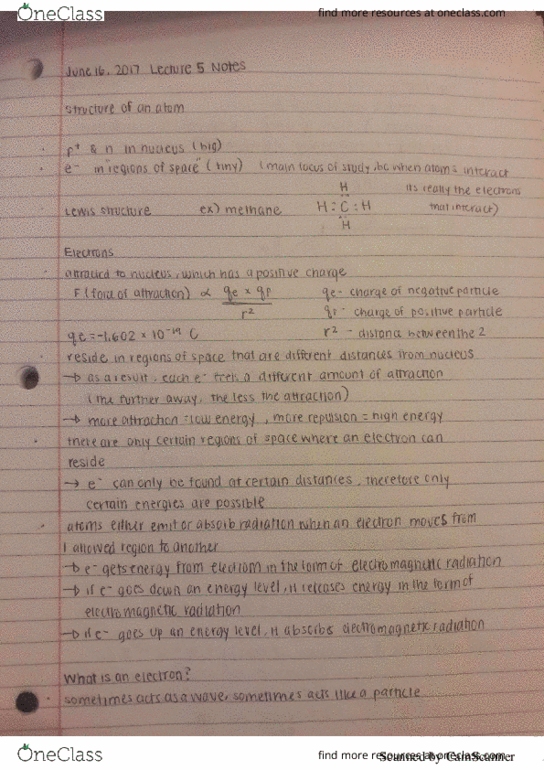 OneClass find more resources at oneclass.com
June 16, 2017 Lecture 5 Notes
structure of an atom
p⁺ & n in nucleus (big)
e⁻ in "regions of space" (tiny) (main focus of study, bc when atoms interact
its really the electrons
that interact)
Lewis structure ex) methane
H
H : C : H
H
Electrons
attracted to nucleus, which has a positive charge
F (force of attraction) ∝ qe × qp
r²
qe - charge of negative particle
qp - charge of positive particle
r² - distance between the 2
qe = -1.602 × 10⁻¹⁹ C
reside in regions of space that are different distances from nucleus
→ as a result, each e⁻ feels a different amount of attraction
(the further away, the less the attraction)
→ more attraction = low energy, more repulsion = high energy
there are only certain regions of space where an electron can
reside
→ e⁻ can only be found at certain distances, therefore only
certain energies are possible
atoms either emit or absorb radiation when an electron moves from
1 allowed region to another
→ e⁻ gets energy from electrom in the form of electromagnetic radiation
→ if e⁻ goes down an energy level, it releases energy in the form of
electromagnetic radiation
→ if e⁻ goes up an energy level, it absorbs electromagnetic radiation
What is an electron?
sometimes acts as a wave, sometimes acts like a particle
OneClass find more resources at oneclass.com
Scanned by CamScanner